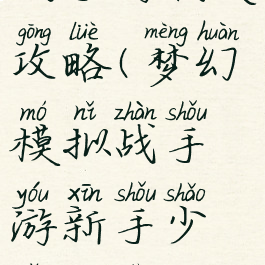 gōng lüè mèng huàn
攻略(梦幻
mó nǐ zhàn shǒu
模拟战手
yóu xīn shǒu shǎo
游新手少